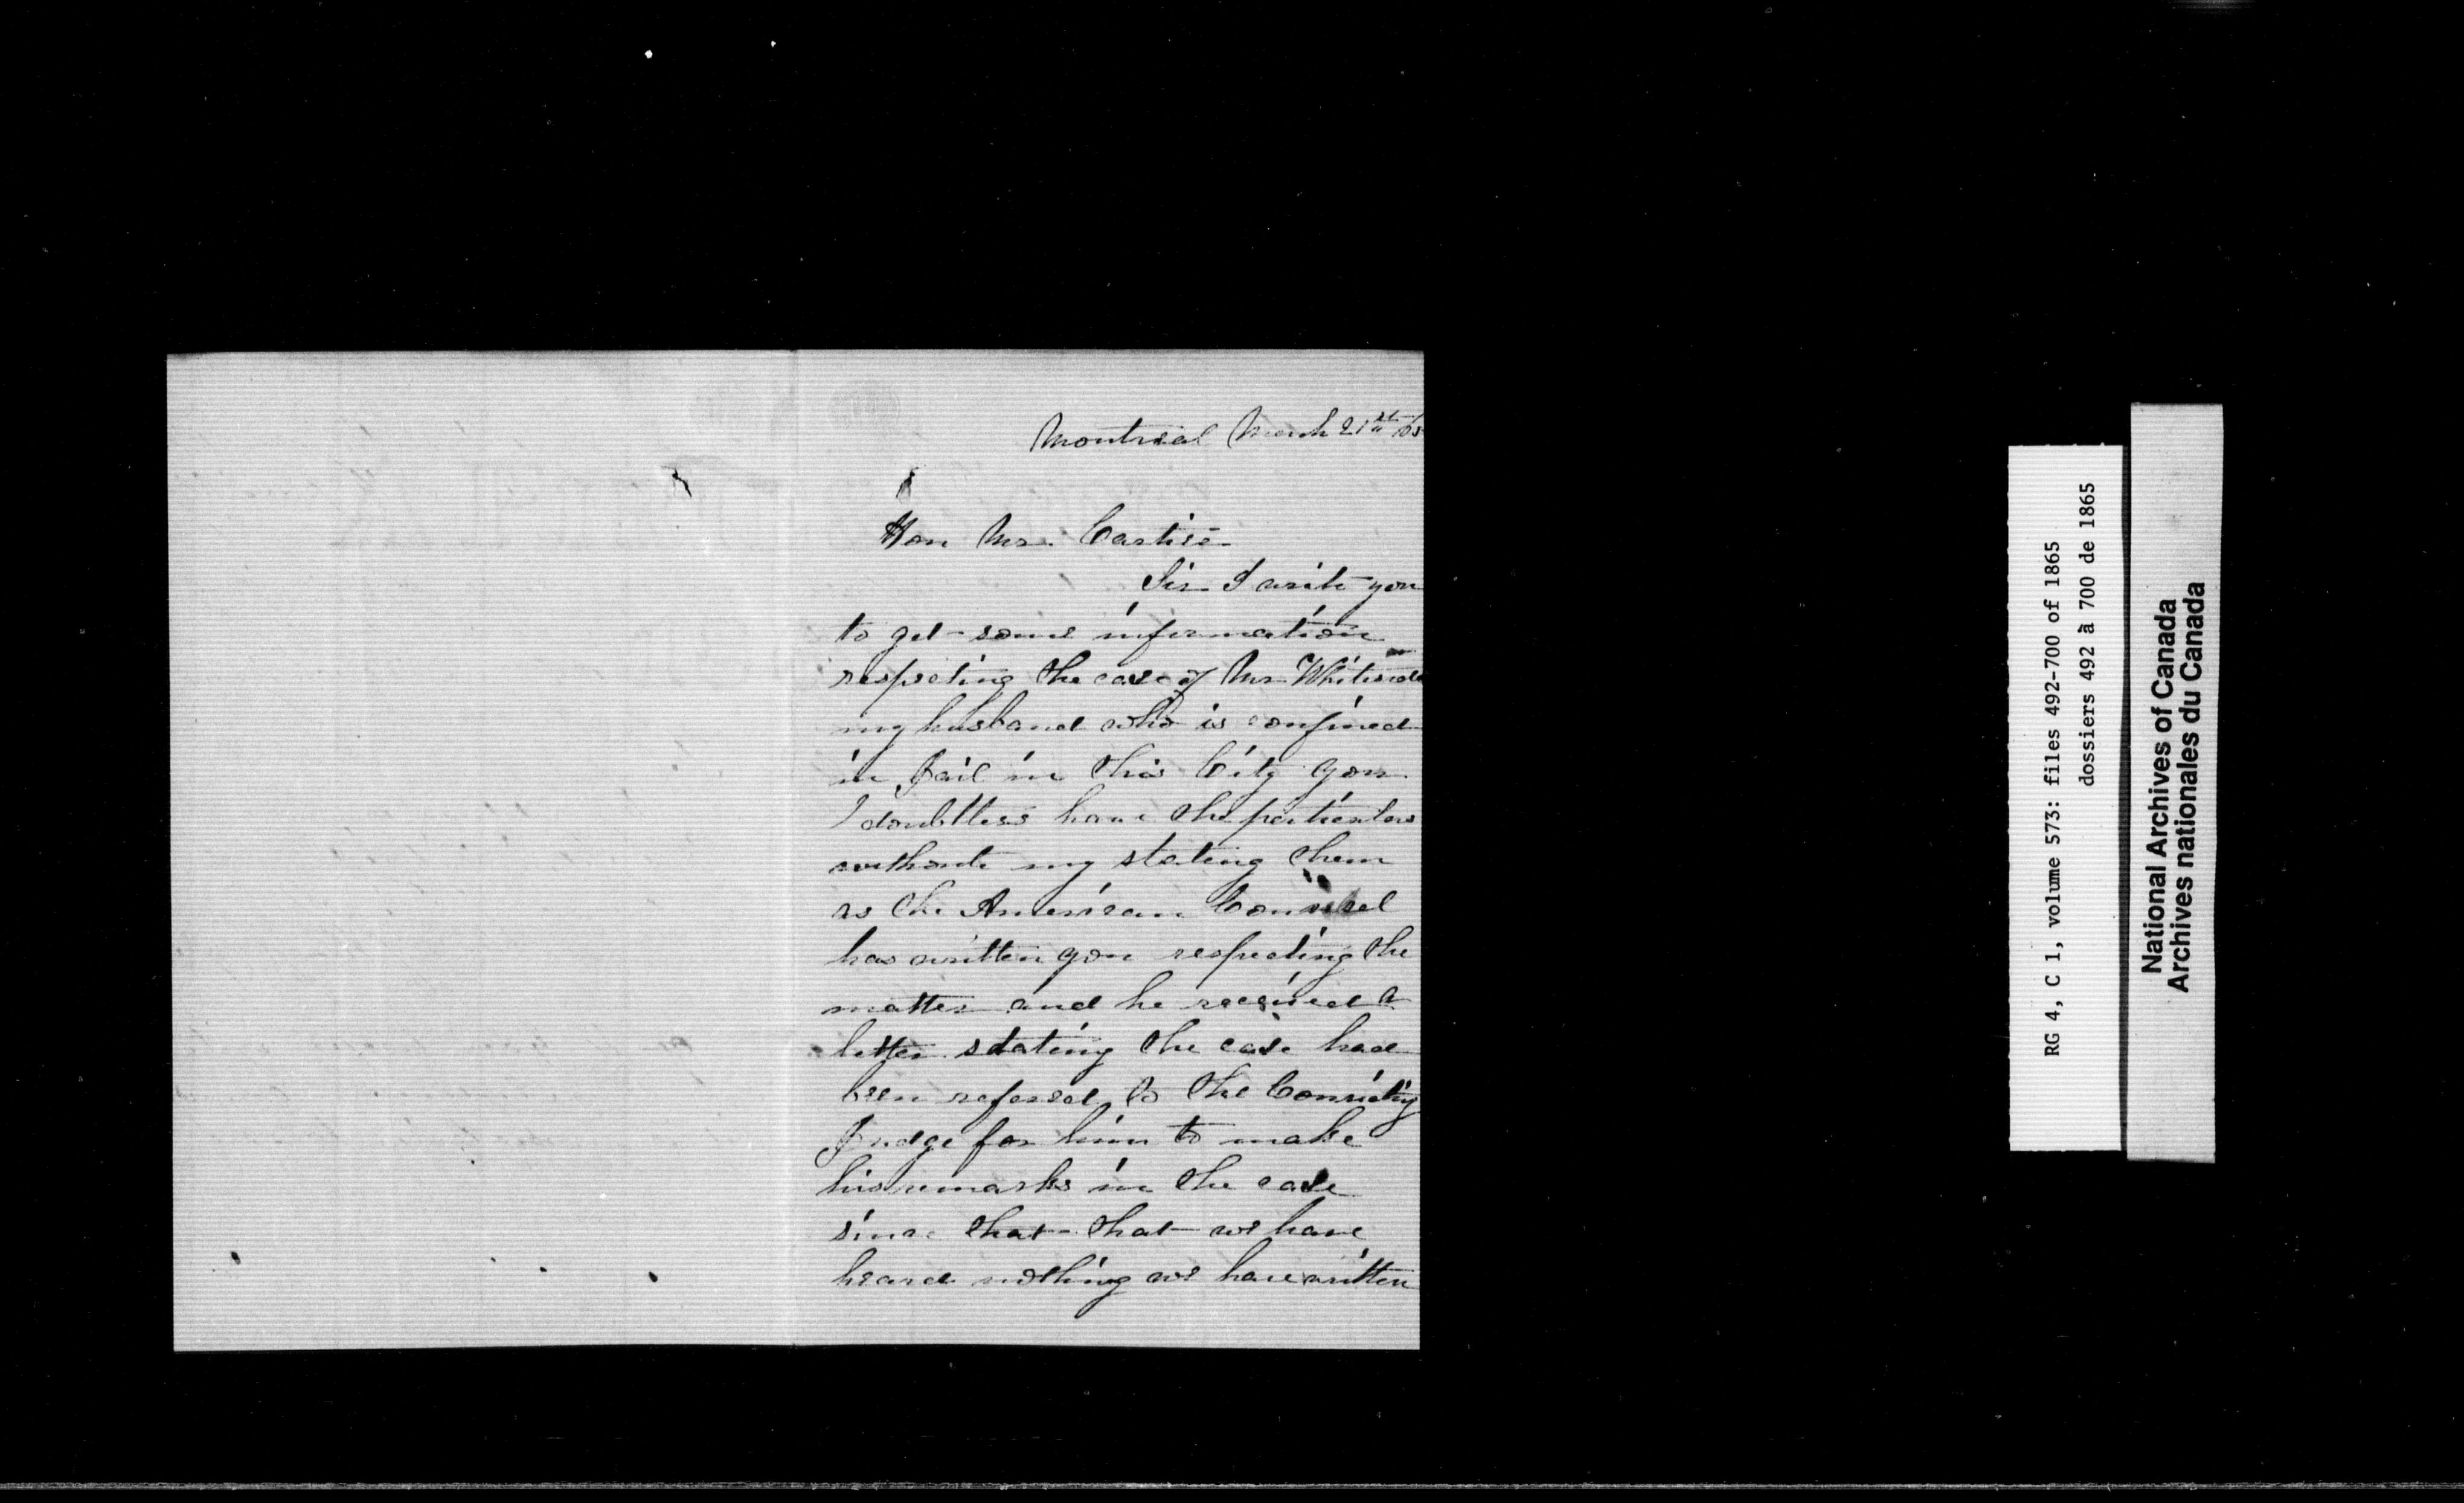 Montreal March 21st /65
Hon Mr. Cartier
Sir I write you
to get some information
respecting the case of Mr Whiteside
my husband who is confined
in Jail in this City you
doubtless have the perticulars
without my stating them
as the American Counsel
has written you respecting the
matter and he received a
letter stating the case had
been refered to the Convicting
Judge for him to make
his remarks in the case
since that that we have
heard nothing we have written
RG 4, C 1, volume 573: files 492-700 of 1865
dossiers 492 à 700 de 1865
National Archives of Canada
Archives nationales du Canada